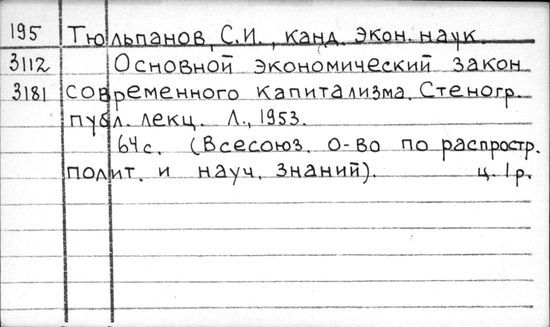 195 Тюльпанов, С.И., канд. экон. наук.
3112 Основной экономический закон
3181 современного капитализма. Стеногр.
публ. лекц. Л., 1953.
64 с. (Всесоюз. о-во по распростр.
полит. и науч. знаний). ц. 1 р.